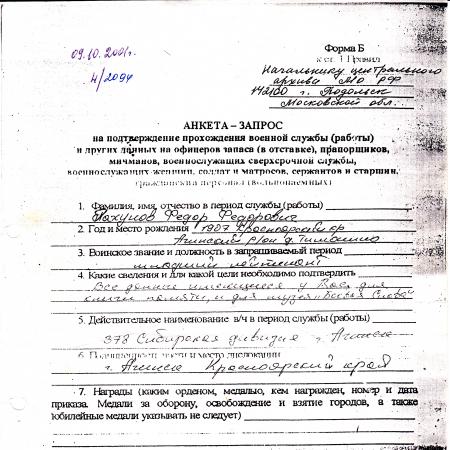 09.10.2001г.
4/2094
Форма Б
к ст. 1 Правил
Начальнику центрального
архива МО РФ
142100 г. Подольск
Московской обл.
АНКЕТА – ЗАПРОС
на подтверждение прохождения военной службы (работы)
и других данных на офицеров запаса (в отставке), прапорщиков,
мичманов, военнослужащих сверхсрочной службы,
военнослужащих женщин, солдат и матросов, сержантов и старшин,
гражданский персонал (вольнонаемных)
1. Фамилия, имя, отчество в период службы (работы)
Пахунов Федор Федорович
2. Год и место рождения 1907 Красноярский кр
Агинский р/он д.
3. Воинское звание и должность в запрашиваемый период
младший лейтенант
4. Какие сведения и для какой цели необходимо подтвердить
Все данные имеющиеся у Вас для
книги памяти, и для музея "Боевая Слава"
5. Действительное наименование в/ч в период службы (работы)
378 Сибирская дивизия г. Агинск
6. Подчиненность части и место дислокации
г. Агинск Красноярский край
7. Награды (каким орденом, медалью, кем награжден, номер и дата
приказа. Медали за оборону, освобождение и взятие городов, а также
юбилейные медали указывать не следует)